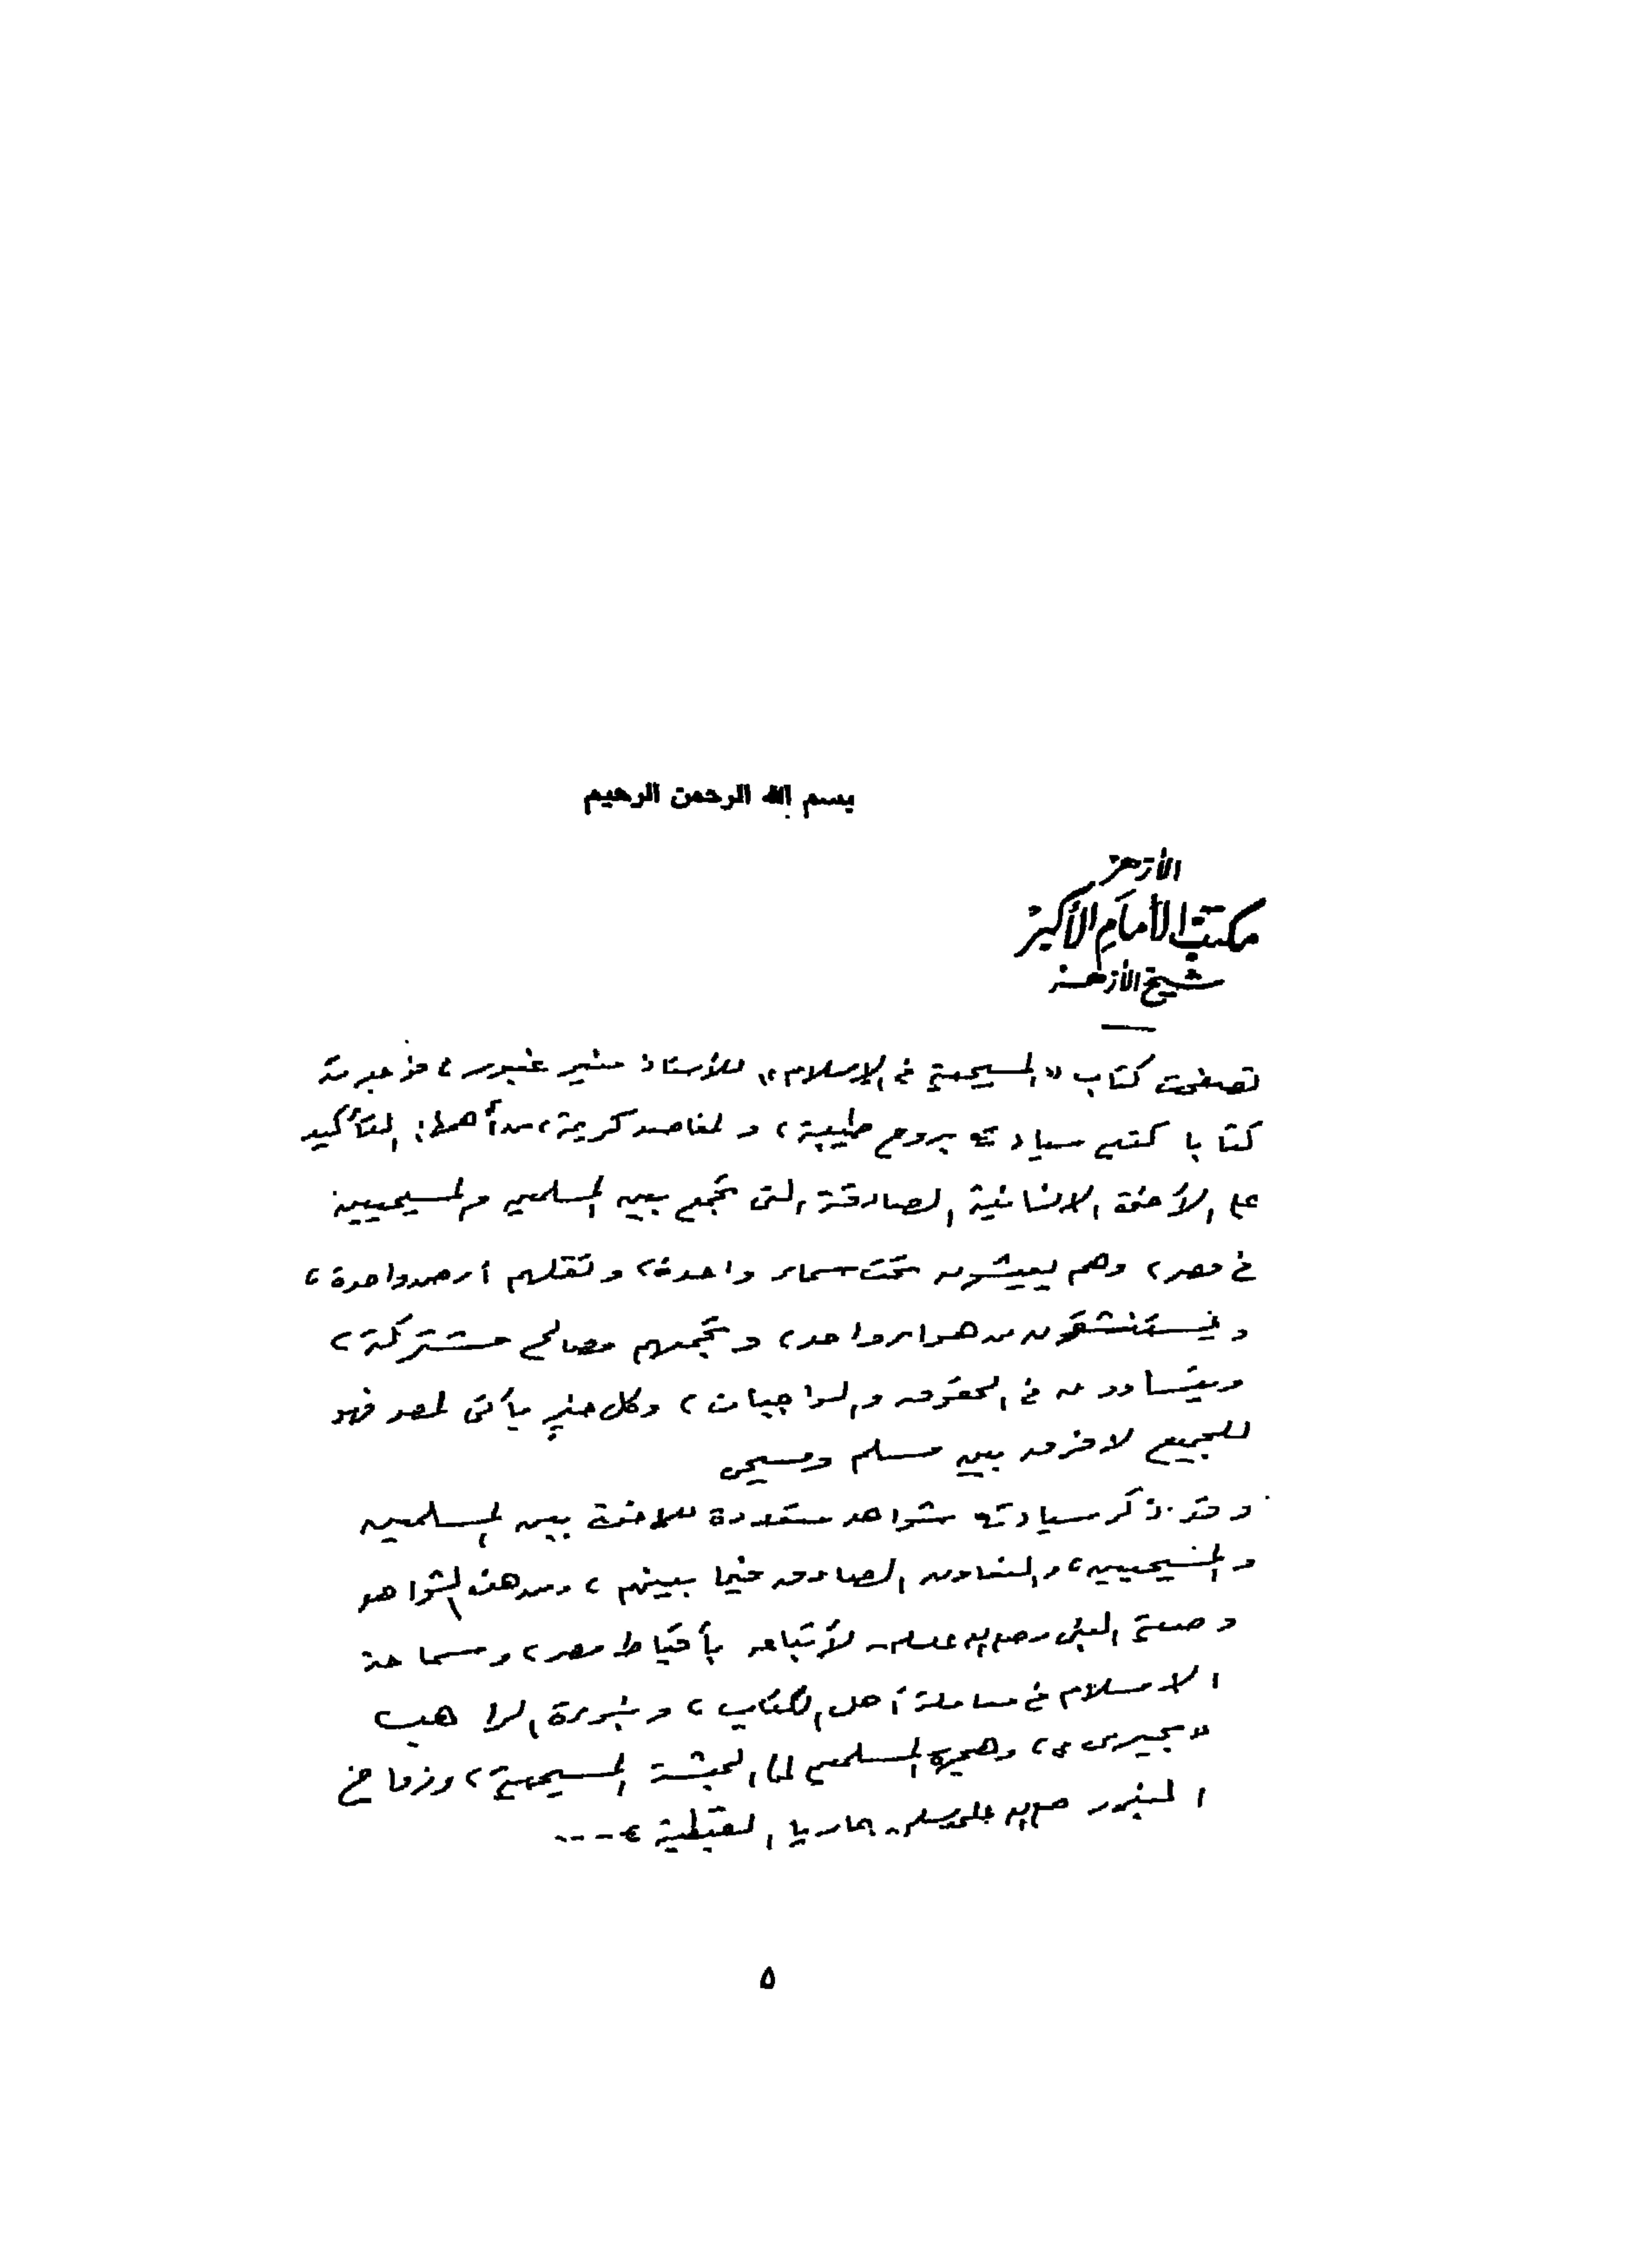 بسم الله الرحمن الرحيم
الأزهر
مكتب الأمام الأكبر
شيخ الأزهر
تصفحت كتاب «المسيحية في الإسلام» للأستاذ منير غبور، فوجدته
كتابا كتبه سيادته بروح طيبة، ولمقاصد كريمة، من أهمها: التأكيد
على الأخوة الانسانية الصادقة التى تجمع بين المسلمين والمسيحيين
في مصر، وهم يعيشون تحت سماء واحدة، وتقلهم أرض واحدة،
ويستنشقون من هواء واحد، وتجمعهم مصالح مشتركة،
ويتساوون في الحقوق والواجبات، وكل خير يأتى لمصر فهو
للجميع لا فرق بين مسلم ومسيحى
وقد ذكر سيادته شواهد متعددة للاخوة بين المسلمين
والمسيحيين، والتعاون الصادق فيما بينهم، ومن هذه الشواهد
وصية النبى صلى الله عليه وسلم لأتباعه بأقباط مصر، وسماحة
الاسلام في معاملة أهل الكتاب، ونبوءة الراهب
«بحيرى»، وهجرة المسلمين إلى الحبشة المسيحية، وزواج
الرسول صلى الله عليه وسلم بماريا القبطية، ....
٥